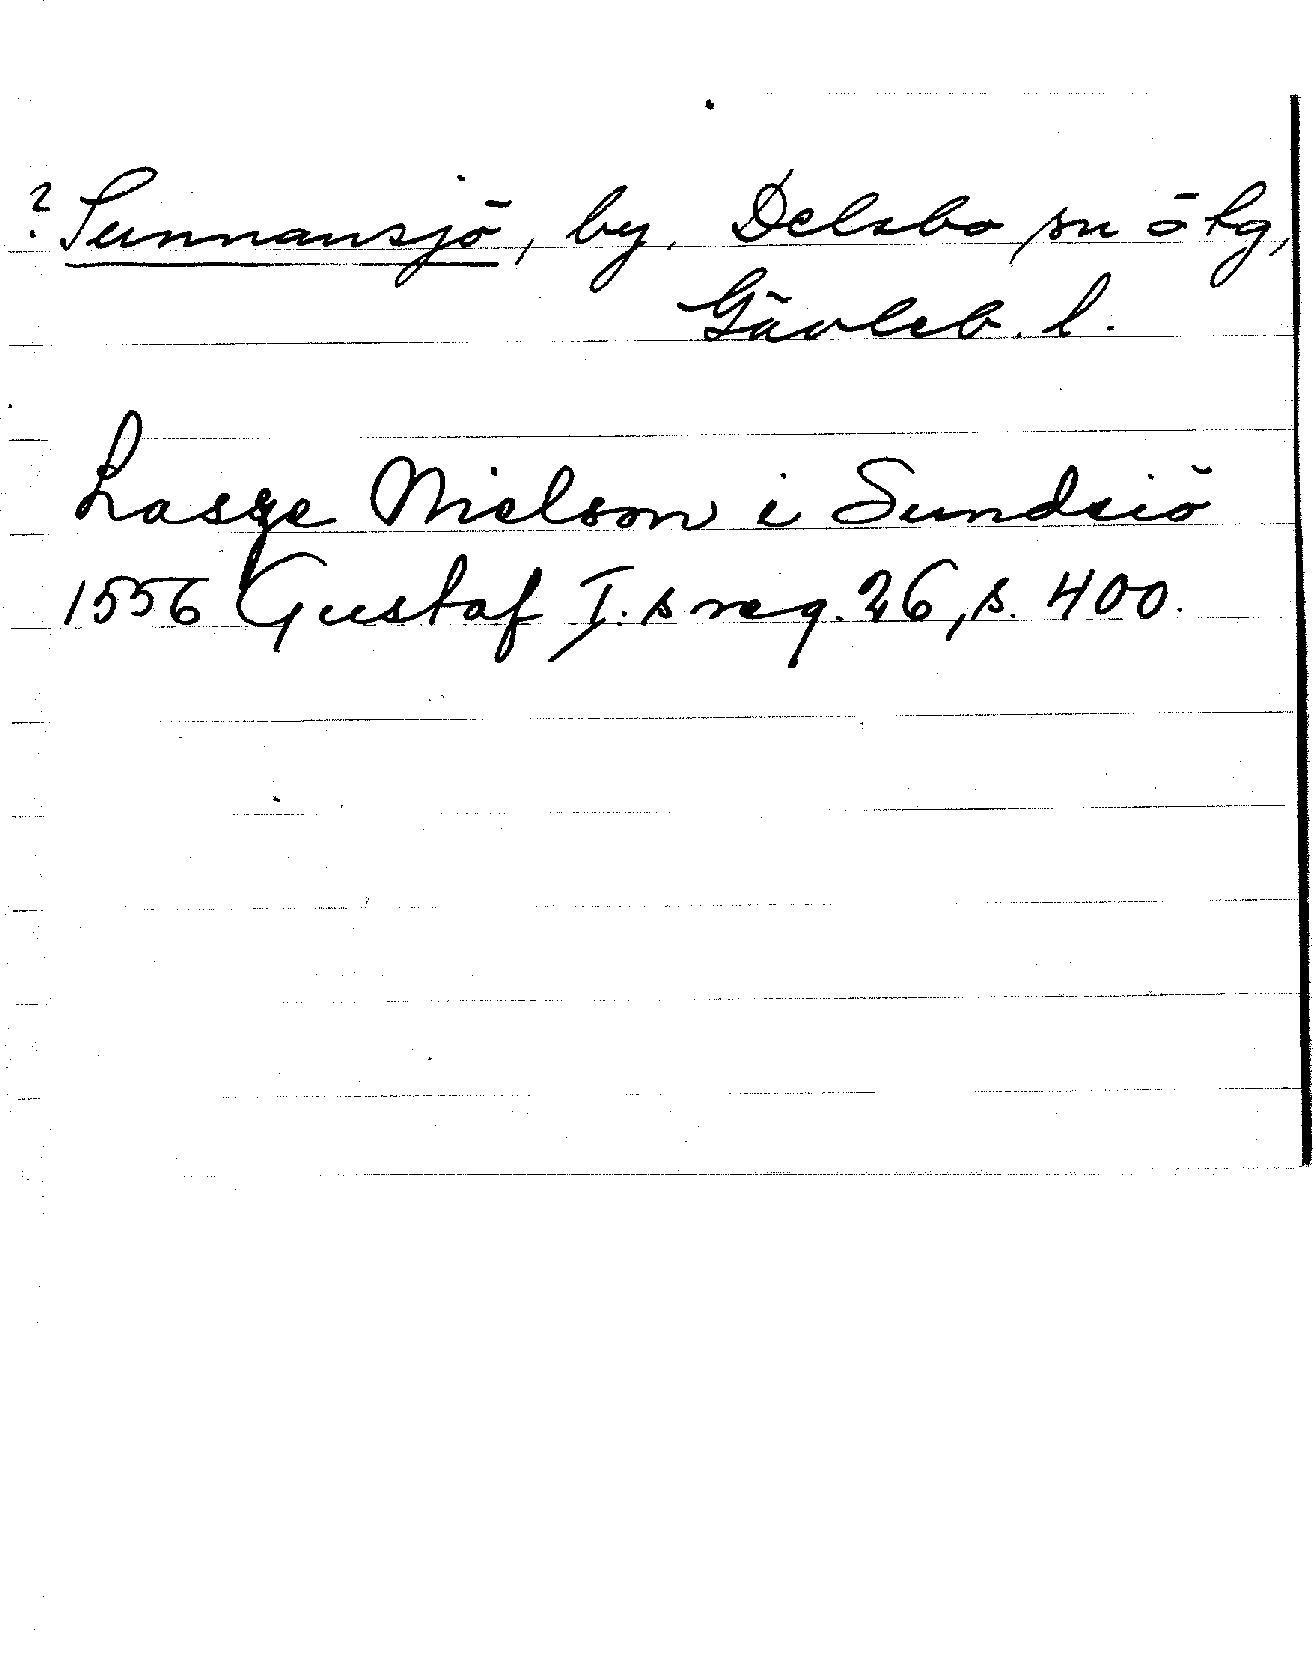 ? Sunnansjö, by, Delsbo sn ö tg,
Gävleb. l.
Lasse Nielson i Sundsiö
1556 Gustaf I:s reg. 26, s. 400.